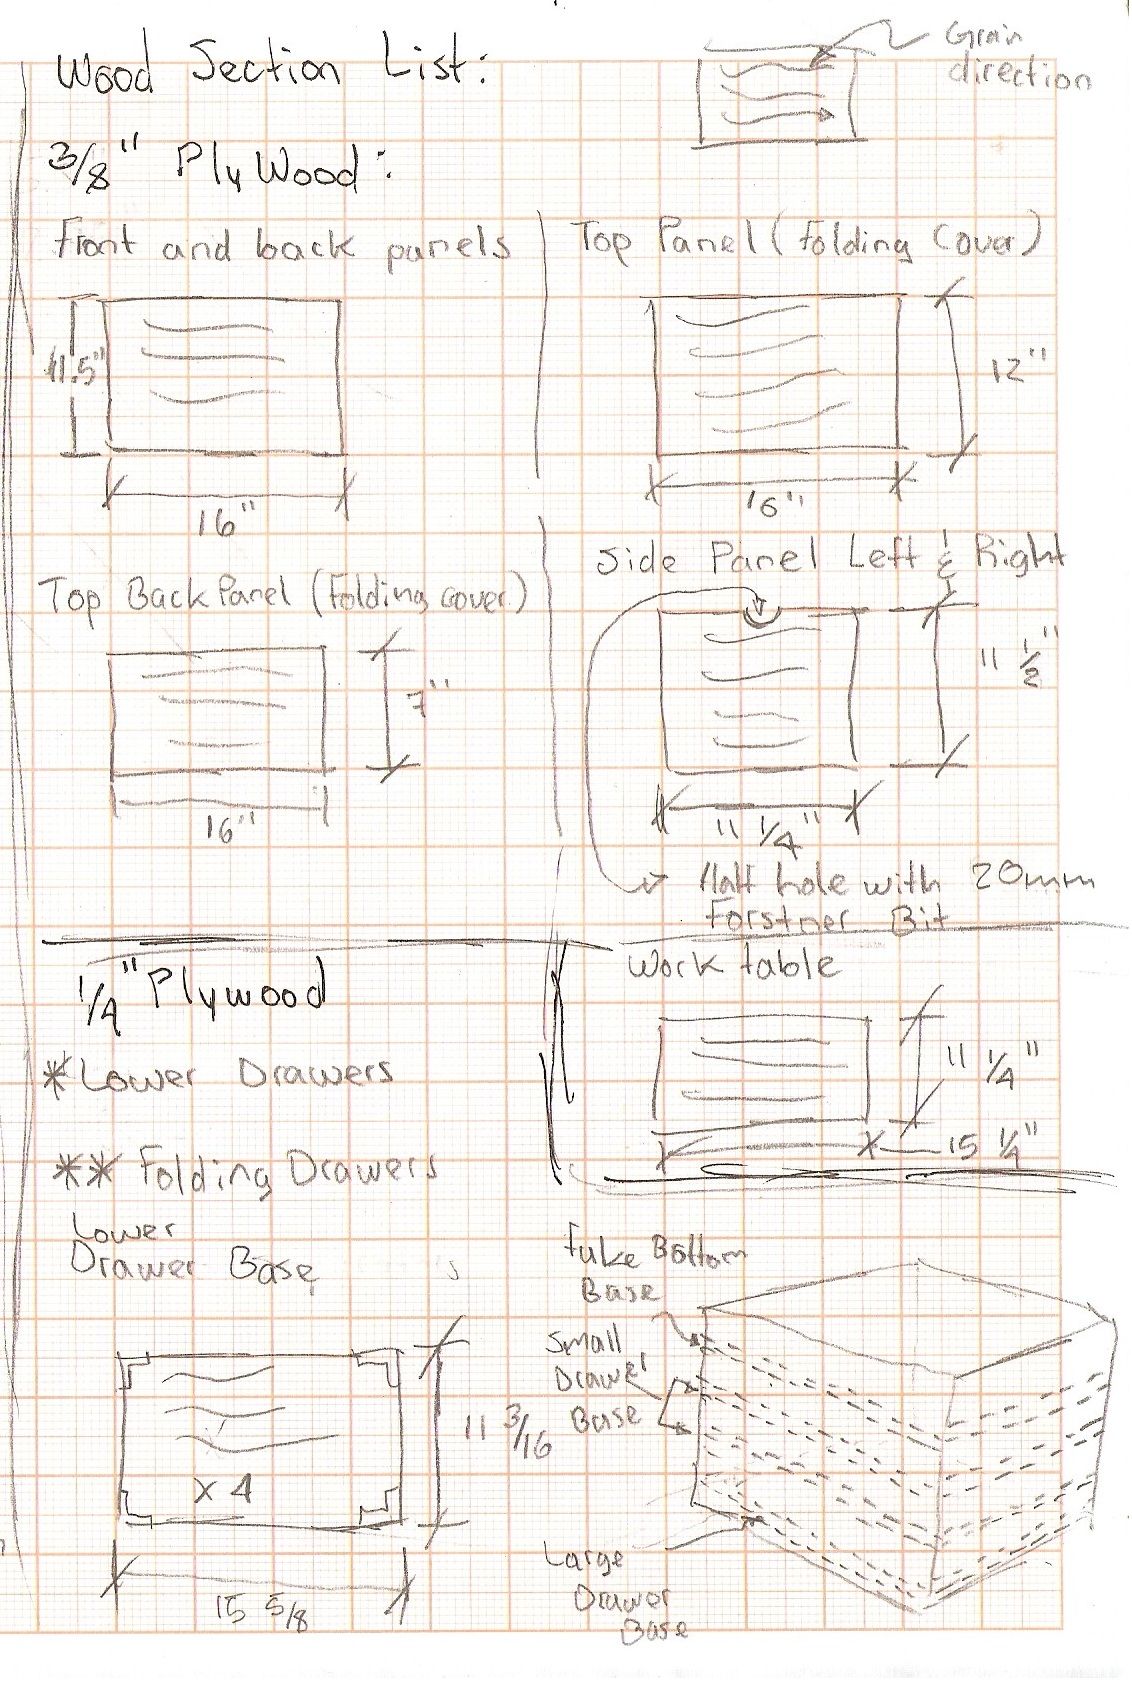 Wood Section List:
Grain
direction
3/8" Plywood:
Front and back panels
11.5"
16"
Top Panel (Folding Cover)
12"
16"
Top Back Panel (Folding cover)
7"
16"
Side Panel Left & Right
11 1/2"
11 1/4"
Half hole with 20mm
Forstner Bit
1/4" Plywood
* Lower Drawers
** Folding Drawers
Work table
11 1/4"
15 1/4"
Lower
Drawer Base
x 4
11 3/16
15 5/8
Fuke Bottom
Base
Small
Drawer
Base
Large
Drawer
Base